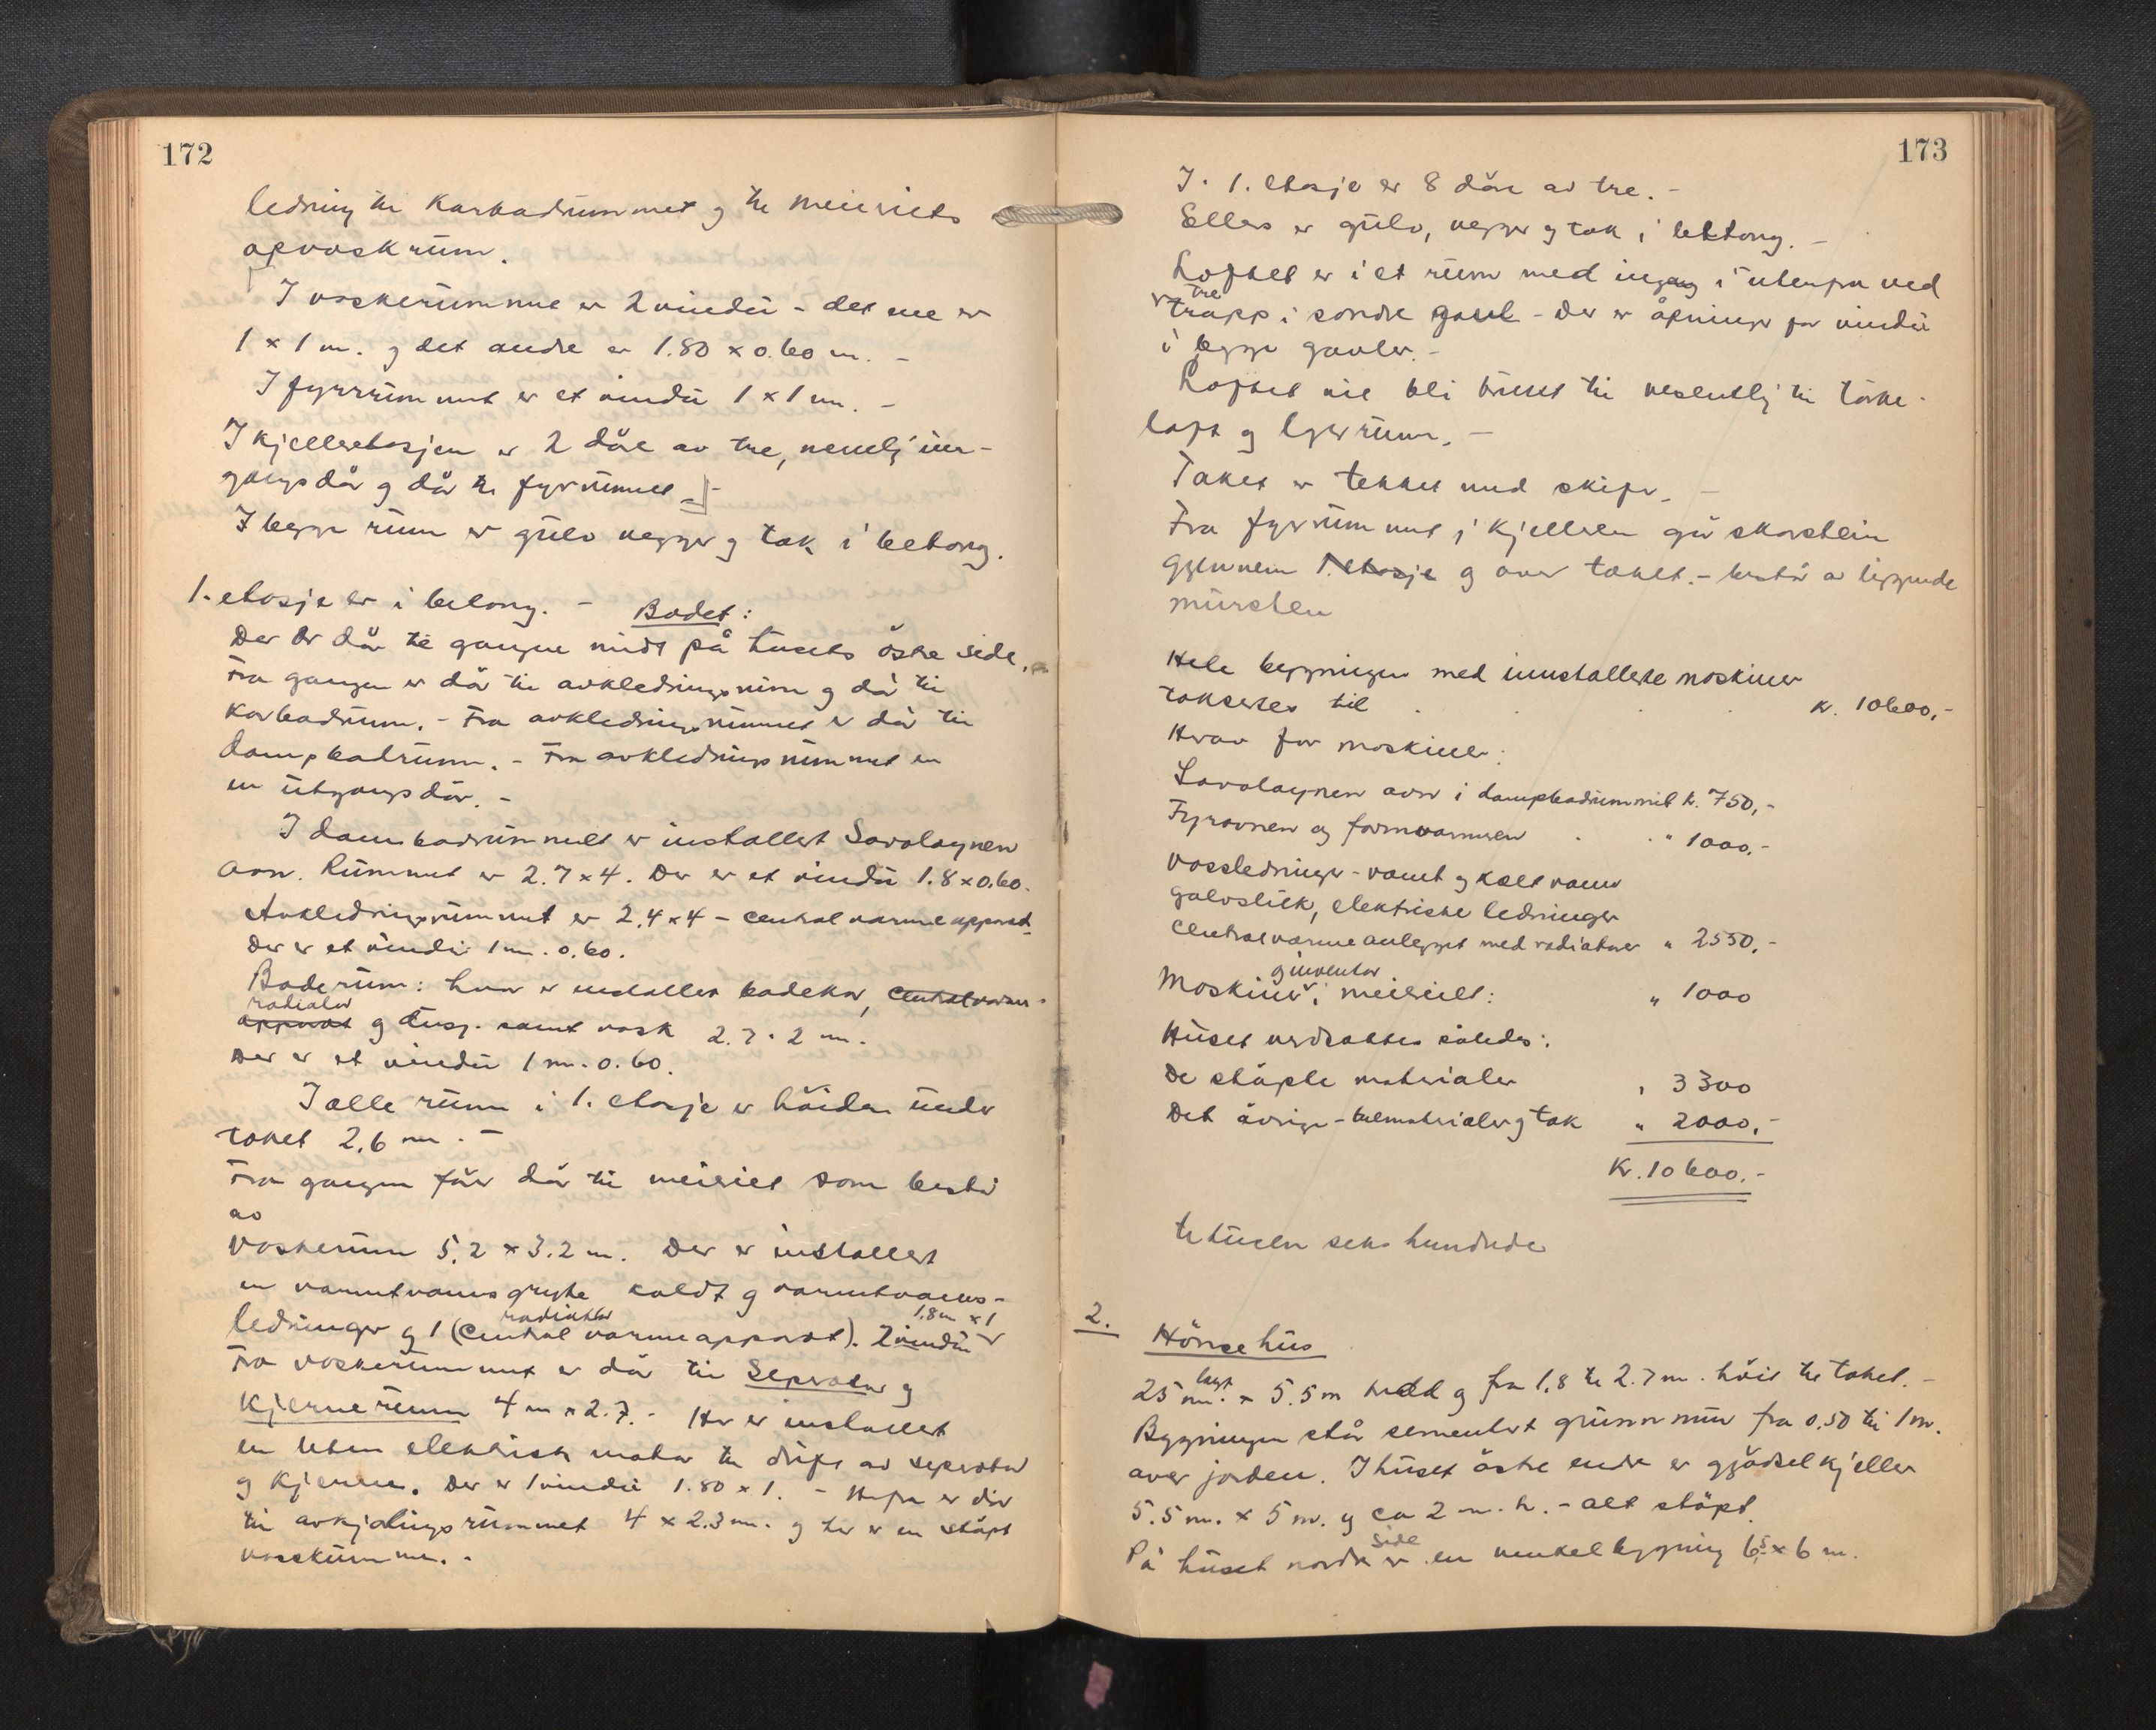 172
ledning til Karbadrummet og til meieriets
opvaskrum.
I vaskerummet er 2 vindu - det ene er
1 × 1 m. og det andre er 1.80 × 0.60 m. -
I fyrrummet er et vindu 1 × 1 m. -
I kjelleretasjen er 2 döre av tre, nemlig inn-
gangsdör og dör til fyrrummet. -
I begge rum er gulv vegger og tak i betong.
1. etasje er i betong. - Badet:
Der er dör til gangen midt på husets östre side.
Fra gangen er dör til avkledningsrum og dör til
Karbadrum. - Fra avkledningsrummet er dör til
dampbadrum. - Fra avkledningsrummet er
en utgangsdör. -
I dambadrummet er installert Savolaynen
ovn. Rummet er 2.7 × 4. Der er et vindu 1.8 × 0.60.
Avkledningsrummet er 2.4 × 4 - centralvarmeapparat.
Der er et vindu 1 m. 0.60.
Baderum: hvor er installert badekar, centralvarme-
radiator
apparat og dusj. samt vask 2.7 · 2 m.
Der er et vindu 1 m. 0.60.
I alle rum i 1. etasje er höiden under
taket 2.6 m. -
Fra gangen förer dör til meieriet som består
av
Vaskerum 5.2 × 3.2 m. Der er installert
en varmtvannsgryte koldt og varmtvanns-
radiator 1.8 m × 1
ledninger og 1 (central varmeapparat). 2 vindu
Fra vaskerummet er dör til Separator og
Kjernerum 4 m × 2.7. - Her er installert
en liten elektrisk motor til drift av separator
og kjerne. Der er 1 vindu 1.80 × 1. - Herfra er dör
til avkjölingsrummet 4 × 2.3 m. og her er en stöpt
vasskumme. -
173
I. 1. etasje er 8 döre av tre. -
Ellers er gulv, vegger og tak i bettong. -
Loftet er i et rum med ingang i utenfra ved
tre
trapp i söndre gavl - Der er åpninger for vindu
i begge gavler. -
Loftet vil bli brukt til vesentlig til törke-
loft og lagerrum. -
Taket er tekket med skifer. -
Fra fyrrummet i kjelleren går skorstein
gjennem 1. etasje og over taket. - består av liggende
mursten
Hele bygningen med innstallerte maskiner
takseres til . . . kr. 10600,-
Hvav for maskiner:
Savolaynen ovn i dampbadrummet kr. 750,-
Fyrovnen og formvarmeren . . " 1000,-
Vassledninger - varmt og kalt vann
galvslick, elektriske ledninger
Centralvarmeanlegget med radiatorer " 2550,-
og inventar
Maskiner i meieriet: " 1000
Huset verdsettes således:
De stöpte materialer " 3300
Det övrige - trematerialer og tak " 2000,-
Kr. 10600.-
ti tusen seks hundrede
2. Hönsehus
langt
25 m. × 5.5 m bredd og fra 1.8 til 2.7 m. höit til taket. -
Bygningen står sementert grunnmur fra 0.50 til 1 m.
over jorden. I huset östre ende er gjödselkjeller
5.5 m. × 5 m. og ca 2 m. h. - alt stöpt.
side
På huset nordre er en vinkelbygning 6.5 × 6 m.